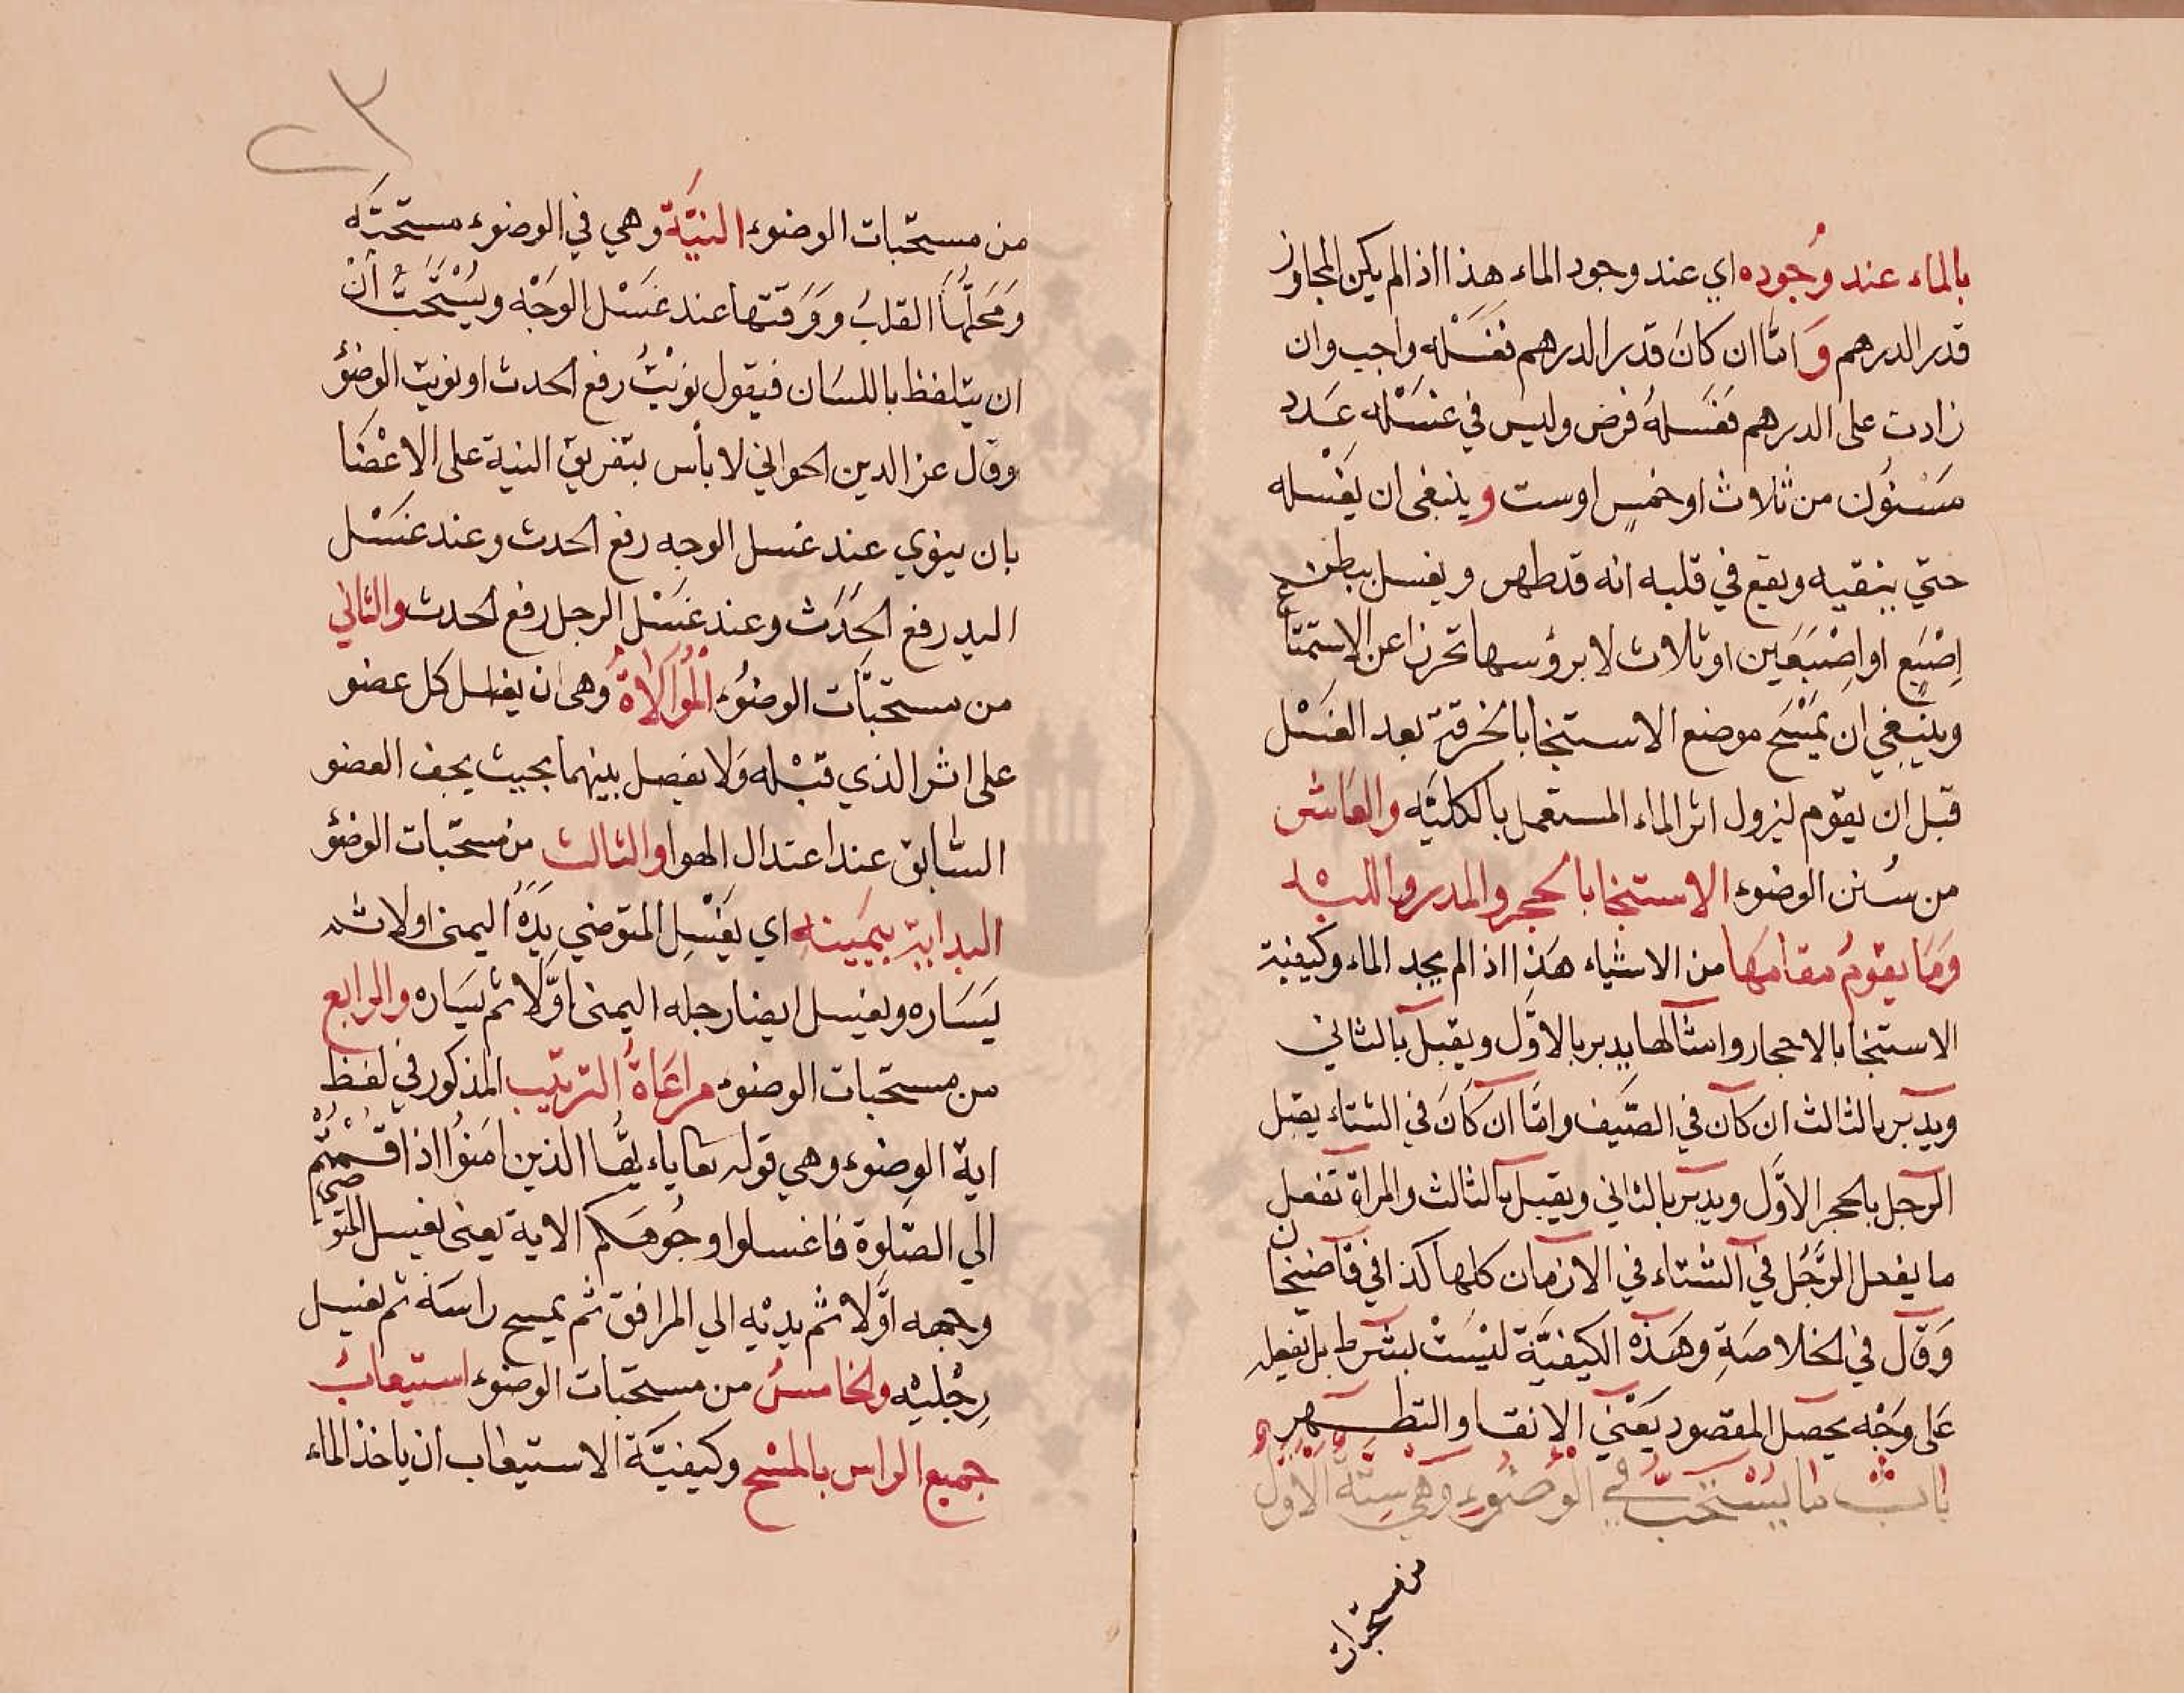 بالماء عند وُجوده اي عند وجود الماء هذا اذا لم يكن المجاوز
قدر الدرهم وَ امّا ان كانَ قدر الدرهم فغَسْله واجب وان
زادت على الدرهم فغَسلهُ فرض وليس في غسْله عَدد
مَسْنُون من ثلاث او خمسٍ او ست و ينبغى ان يغْسله
حتي ينقيه ويقع في قلبه انه قد طهر ويغسل ببطن
اِصْبَعٍ او اِصْبَعَين او ثلاث لا برؤسها تحرزا عن الاستمتاع
وينبَغي ان يمْسَح موضع الاستنجا بالخرقة بعد الغسْل
قبل ان يقوم ليزول اثر الماء المستعمل بالكليّه والعَاشر
من سُنن الوضوء الاستنجا بالحجر والمدر واللبْد
وَمَا يقومُ مقامها من الاشياء هَذا اذا لم يجد الماء وكيفية
الاستنجا بالاحجار وامثالها يدبر بالاوَّل ويقبل بالثاني
ويدبر بالثالث ان كان في الصَّيف وامّا ان كانَ في الشتاء يقبل
الرجل بالحجر الاوَّل ويدبر بالثاني ويقبل بالثالث والمراة تفعل
ما يفعل الرَّجُل في الشتاء في الازمان كلها كذا في قاضيخان
وَقال في الخلاصَةِ وهَذه الكيفيَّة ليْسَتْ بشرط بل يفعله
عَلى وَجْه يحصل المقصود يَعْني الانقا والتطهر
بَابُ مَا يُسْتَحَبُّ في الْوُضُوءِ وَهِي سِتَّةٌ الْاَوَّلُ
من مستحبات
٢٣
من مستحّبات الوضوء النيَّة وهي في الوضوء مستحبَّة
وَمَحَلّهَا القلبُ وَوَقتها عند غَسْل الوَجْه ويُسْتَحَبُّ أنْ
ان يتلفظ باللسَان فيقول نوَيْتُ رفع الحدث او نويت الوضؤ
وقال عز الدين الحواني لا بأس بتفريق النية على الاعْضَا
بان ينوي عند غسل الوجه رفع الحدث وعند غسْل
اليد رفع الحَدَث وعند غسْل الرجل رفع الحدث والثاني
من مستحبّات الوضوُء الْمُوَالَاةُ وهى ان يغسل كل عضو
على اثر الذي قبْله وَلا يفصل بينهما بحيث يجف العضو
السّابق عند اعتدال الهوا والثالث من مستحّبات الوضؤ
البداية بيَمينهِ اي يَغْسِل المتوضي يَدَهُ اليمنى اولا ثم
يَسَاره ويغسل ايضا رجله اليمنى اوّلا ثم يسَاره والرابع
من مستحبات الوضوء مراعَاةُ الترتيب المذكور في لفظ
اية الوضوء وهي قوله تعا ياءيّها الذين امَنوُا اذا قمْتُمْ
الي الصّلوة فاغسلوا وجُوهَكم الاية يعنى يغسل المتوضى
وجهه اوَّلا ثم يديْه الي المرافق ثم يمسح راسَه ثم يغسل
رِجْليْه والخامسُ من مستحبات الوضوء استيعابُ
جميع الراس بالمسْح وكيفيَّة الاستيعاب ان ياخذ الماء